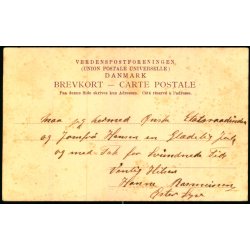 VERDENSPOSTFORENINGEN.
(UNION POSTALE UNIVERSELLE)
DANMARK
BREVKORT — CARTE POSTALE
Paa denne Side skrives kun Adressen. Côté réservé à l'adresse.
maa jeg hermed Ønske Etatsraadinden
og Jomfrü Hansen en Glædelig Jul
og med Tak for Svündende Tid
Venlig Hilsen
Hanne Rasmussen